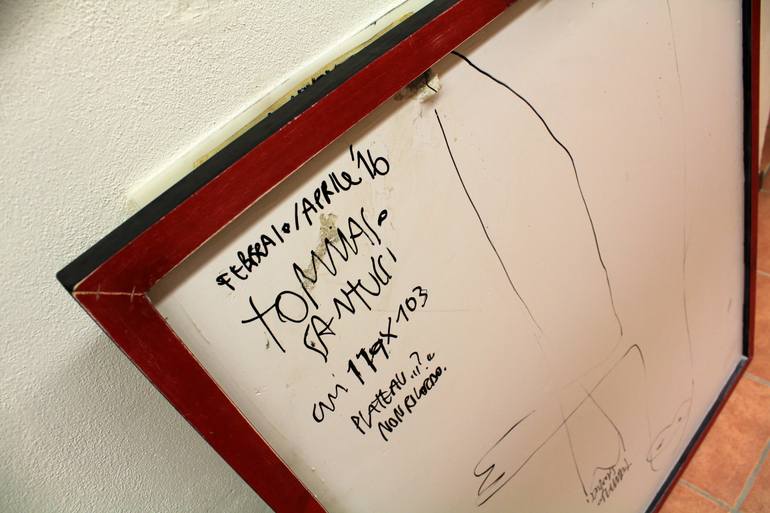 FEBBRAIO/APRILE '16
TOMMASO
SANTUCCI
cm 119X103
PLATEAU...?
NON RICORDO.